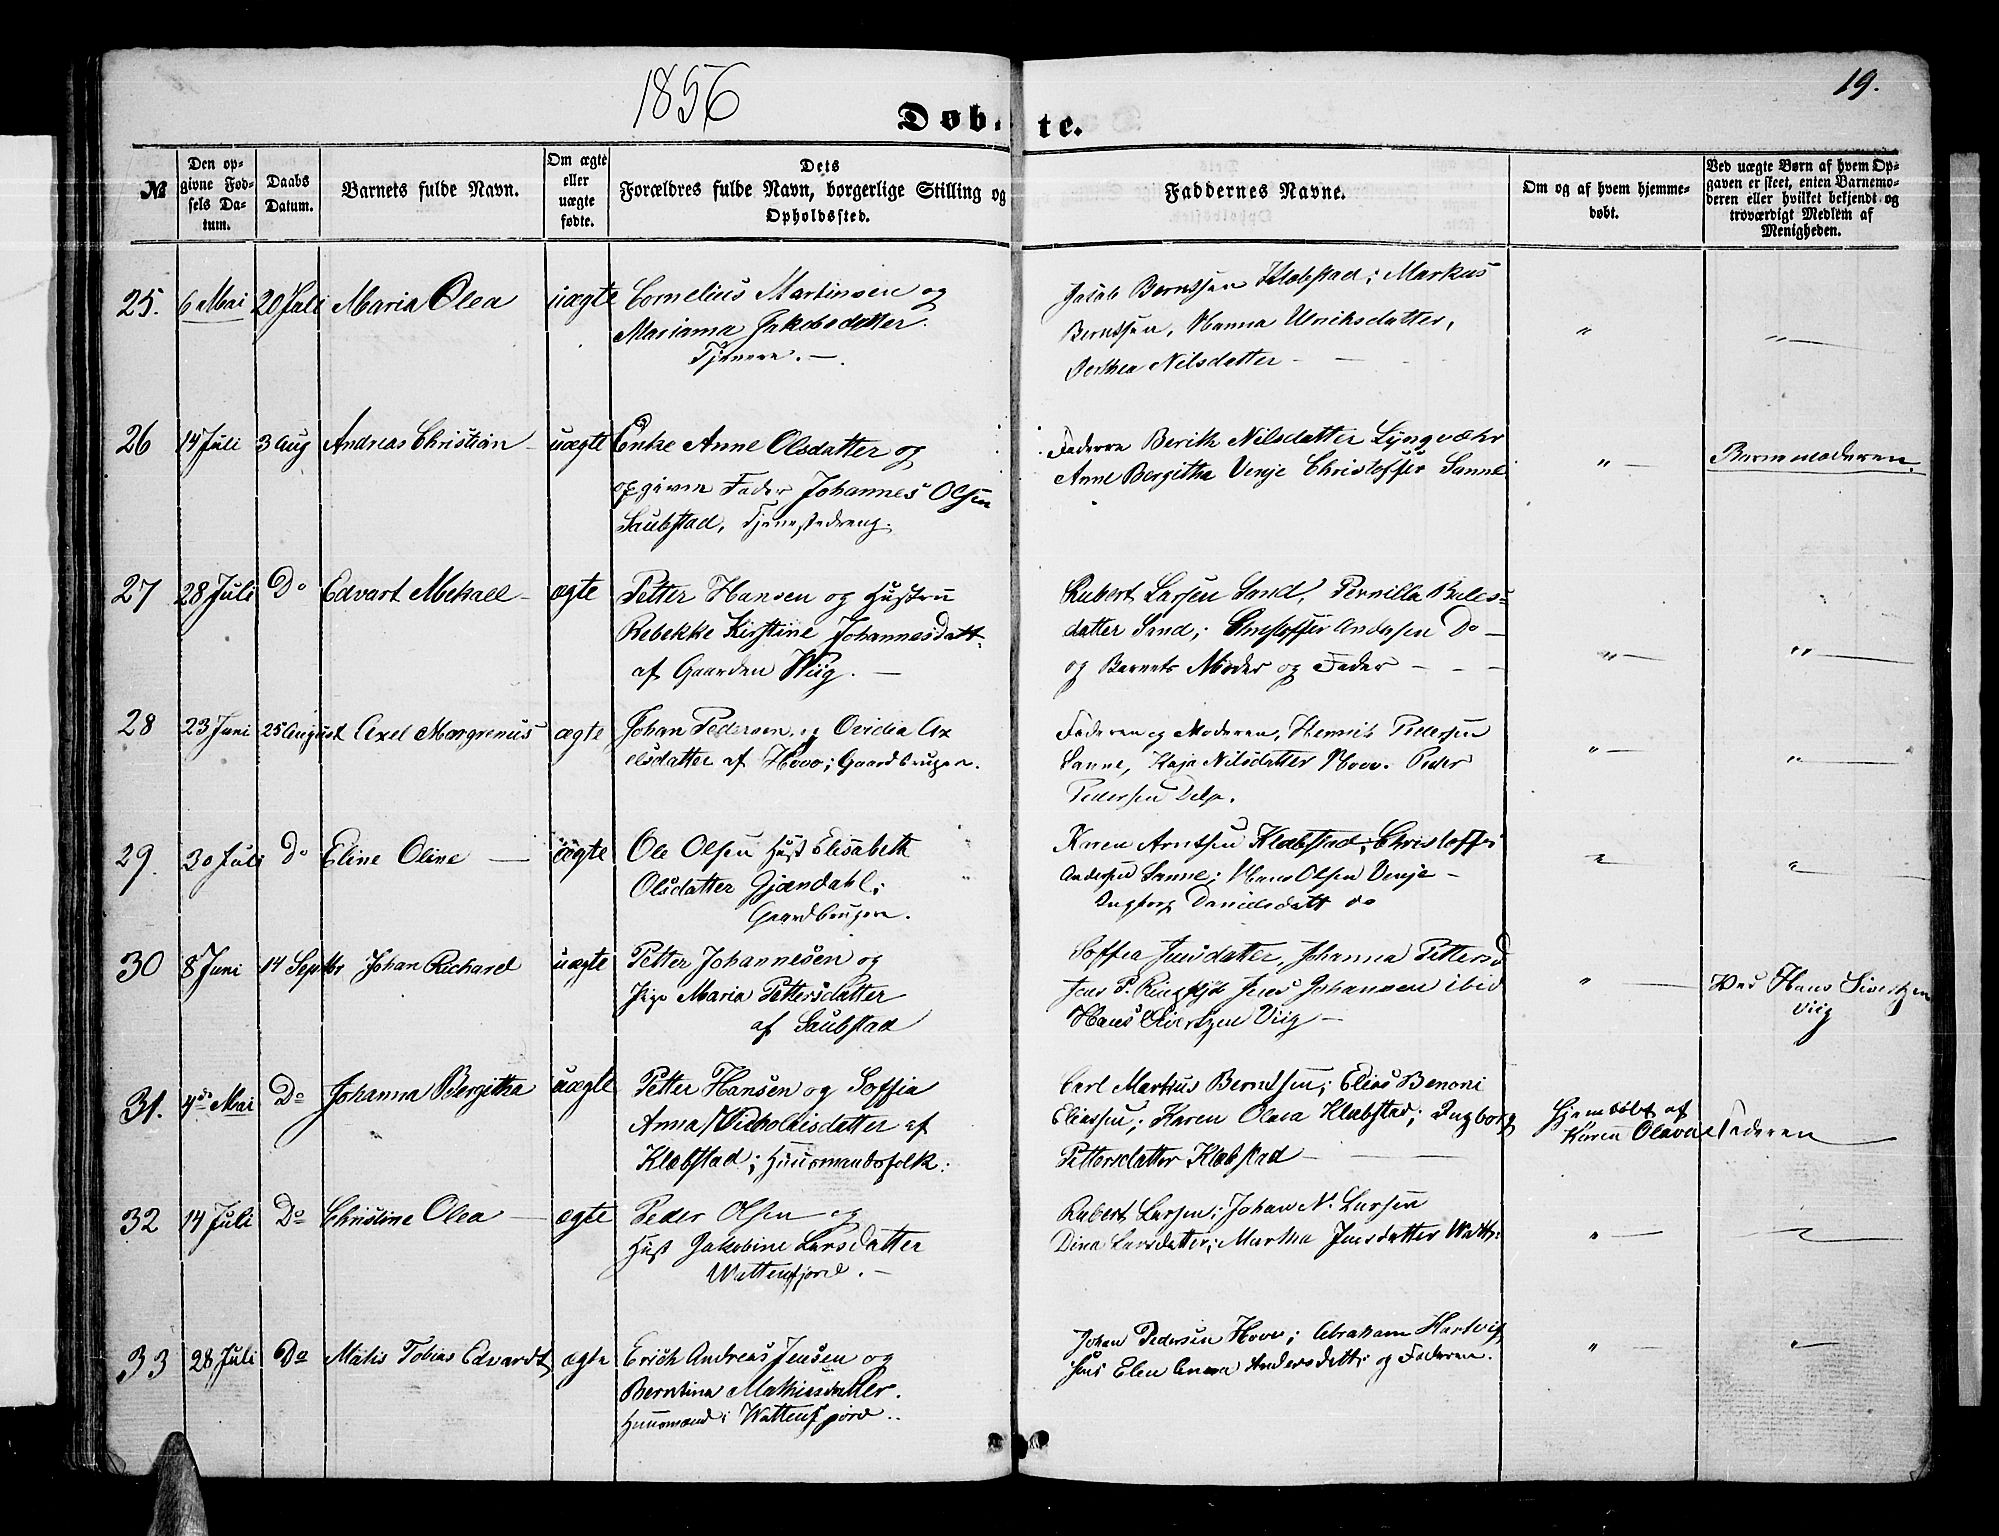 1856
19.
Døbte.
№
Den opgivne Fødsels Datum.
Daabs Datum.
Barnets fulde Navn.
Om ægte eller uægte fødte.
Dets Forældres fulde Navn, borgerlige Stilling og Opholdssted.
Faddernes Navne.
Om og af hvem hjemmedøbt.
Ved uægte Børn af hvem Opgaven er skeet, enten Barnemoderen eller hvilket bekjendt og troværdigt Medlem af Menigheden.
25. 6 Mai 20 Juli Maria Olea uægte Cornelius Martinsen og
Marianna Jakobsdatter.
Tjenere. —
Jakob Berntsen Klæbstad; Markus
Berntsen, Hanna Ulriksdatter,
Dorthea Nilsdatter — —
26 14 Juli 3 Aug Andreas Christian — uægte Enke Anne Olsdatter og
opgiven Fader Johannes Olsen
Saubstad, Tjenestedreng.
Faderen Berith Nilsdatter Lyngvæhr
Anne Bergitha Venje Christoffer Sanne
" —
Barnemoderen.
27 28 Juli Do Edvart Mekael — ægte Petter Hansen og Hustru
Rebekke Kirstine Johannesdatt
af Gaarden Wiig. —
Rubert Larsen Sand, Pernilla
datter Sand; Christoffer Andersen Do —
og Barnets Moder og Fader — — —
28 23 Juni 25 August Axel Magrenus ægte Johan Pedersen og Ovidia Ax
elsdatter af Hove; Gaardbruger.
Faderen og Moderen, Henrik Pedersen
Sanne, Kaja Nilsdatter Hove. Peder
Pedersen Delp.
29. 30 Juli Do Eline Oline — ægte Ole Olsen Hust Elisabeth
Olsdatter Gjændahl;
Gaardbruger.
Karen Arntsen Klæbstad; Christoffer
Andersen Sanne; Hans Olsen Venje —
Ingborg Danielsdatt do
30 8 Juni 14 Septbr Johan Richard uægte Petter Johannesen og
Pige Maria Pettersdatter
af Saubstad
Soffia Jensdatter, Johanna Pettersd
Jens P. Jens Johansen ibid
Hans Sivertzen Viig —
Ved Hans Sivertzen
Viig
31. 4de Mai Do Johanna Bergitha uægte Petter Hansen og Soffia
Anna Nicholaisdatter af
Klæbstad; Huusmandsfolk.
Carl Martius Berntsen; Elias Benoni
Eliassen; Karen Olava Klæbstad; Ingborg
Pettersdatter Klæbstad —
Hjemdøbt af
Karen Olava
Faderen
32 14 Juli Do Christine Olea — ægte Peder Olsen og
Hust Jakobine Larsdatter
Wattenfjord. —
Rubert Larsen; Johan N. Larsen
Dina Larsdatter; Martha Jensdatter Watt:
" —
33 28 Juli Do Matis Tobias Edvardt ægte Erich Andreas Jensen og
Berntina Mathiasdatter.
Huusmænd i Wattenfjord.
Johan Pedersen Hove; Abraham Hartvig
sen Elen Anna Andersdatt: og Faderen.